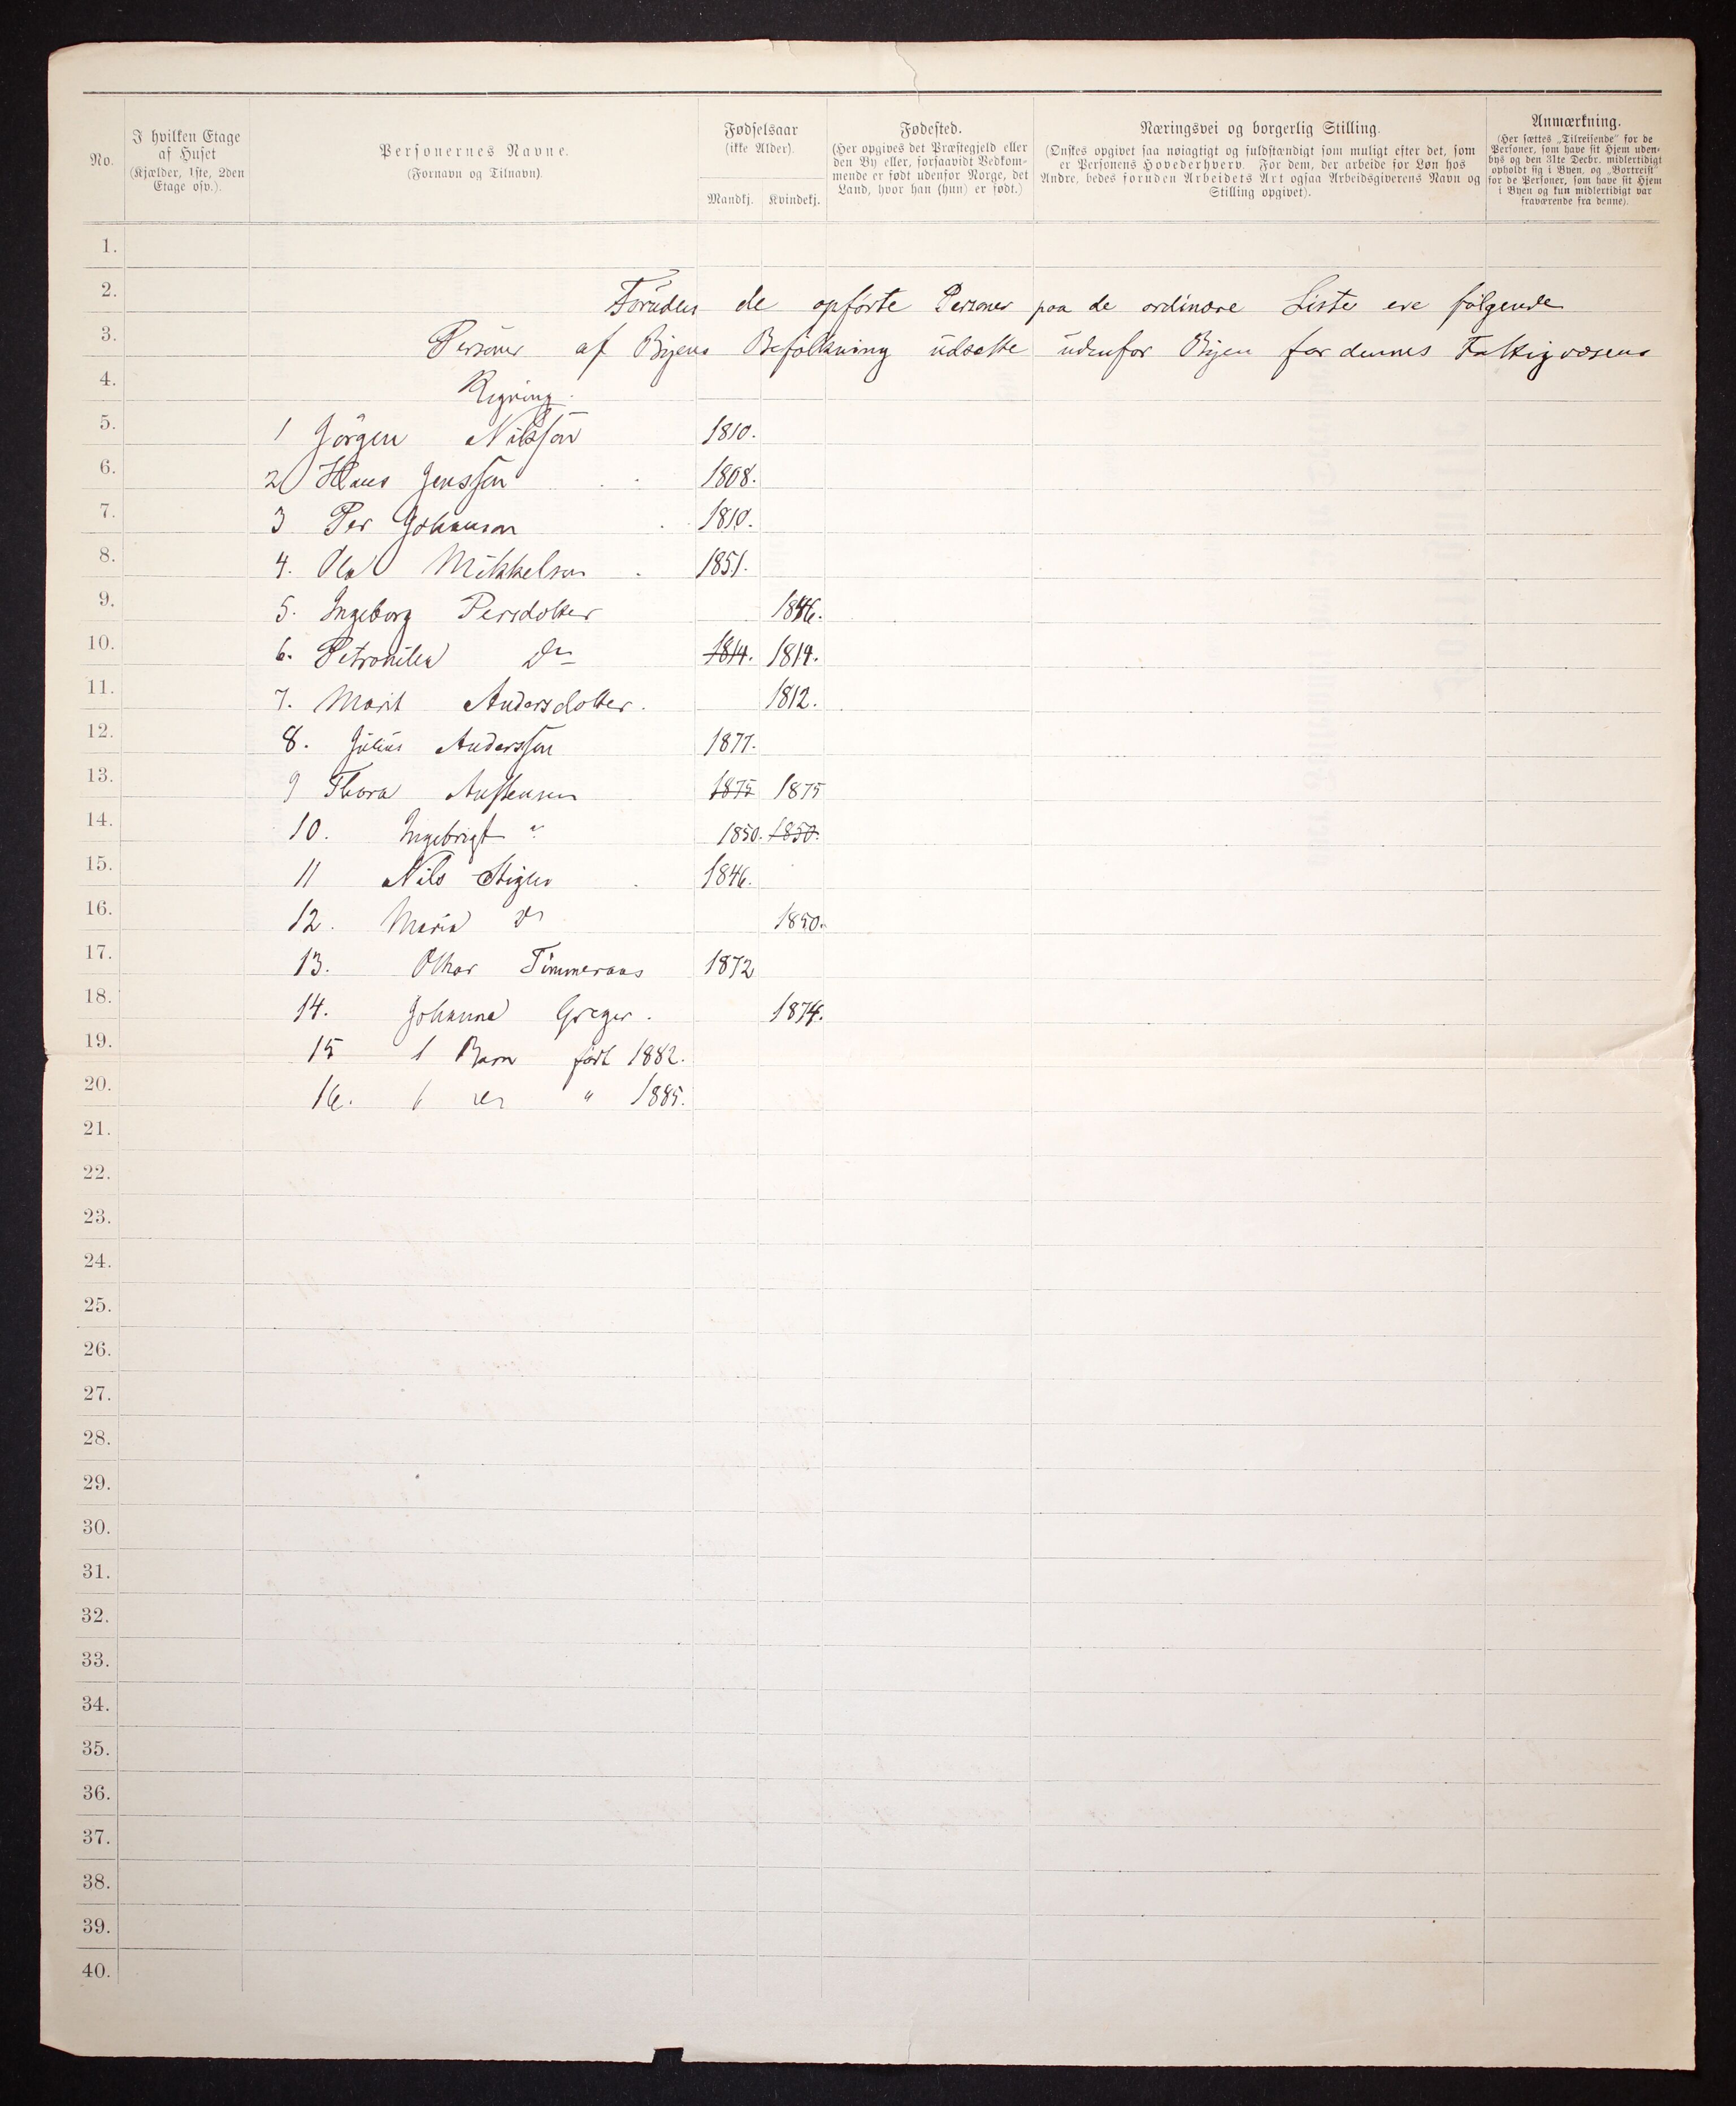 No.
I hvilken Etage af Huset (Kjælder, 1ste, 2den Etage osv.).
Personernes Navne. (Fornavn og Tilnavn).
Fødselsaar (ikke Alder).
Mandkj. Kvindekj.
Fødested. (Her opgives det Præstegjeld eller den By eller, forsaavidt Vedkommende er født udenfor Norge, det Land, hvor han (hun) er født.)
Næringsvei og borgerlig Stilling.
(Ønskes opgivet saa nøiagtigt og fuldstændigt som muligt efter det, som er Personens Hovederhverv. For dem, der arbeide for Løn hos Andre, bedes foruden Arbeidets Art ogsaa Arbeidsgiverens Navn og Stilling opgivet).
Anmærkning.
(Her sættes „Tilreisende" for de Personer, som have sit Hjem udenbys og den 31te Decbr. midlertidigt opholdt sig i Byen, og „Bortreist" for de Personer, som have sit Hjem i Byen og kun midlertidigt var fraværende fra denne).
1.
2. Foruden de opførte Personer paa de ordinære Liste ere følgende
3. Personer af Byens Befolkning udsatte udenfor Byen for dennes Fattigvæsens
4. Regning.
5. 1 Jørgen Nilssøn 1810.
6. 2 Hans Jenssøn 1808.
7. 3 Per Johanson 1810.
8. 4. Ola Mikkelsen 1851.
9. 5. Ingeborg Persdotter 1846.
10. 6. Petronila Do 1814. 1814.
11. 7. Marit Andersdotter. 1812.
12. 8. Julius Anderssøn 1877.
13. 9 Thora 1875 1875
14. 10. Ingebrigt " 1850. 1850.
15. 11 Nils 1846.
16. 12. Maria Do 1850.
17. 13. Othar Timmeraas 1872
18. 14. Johanna Greger. 1874.
19. 15 1 Barn født 1882.
20. 16. 1 do " 1885.
21.
22.
23.
24.
25.
26.
27.
28.
29.
30.
31.
32.
33.
34.
35.
36.
37.
38.
39.
40.